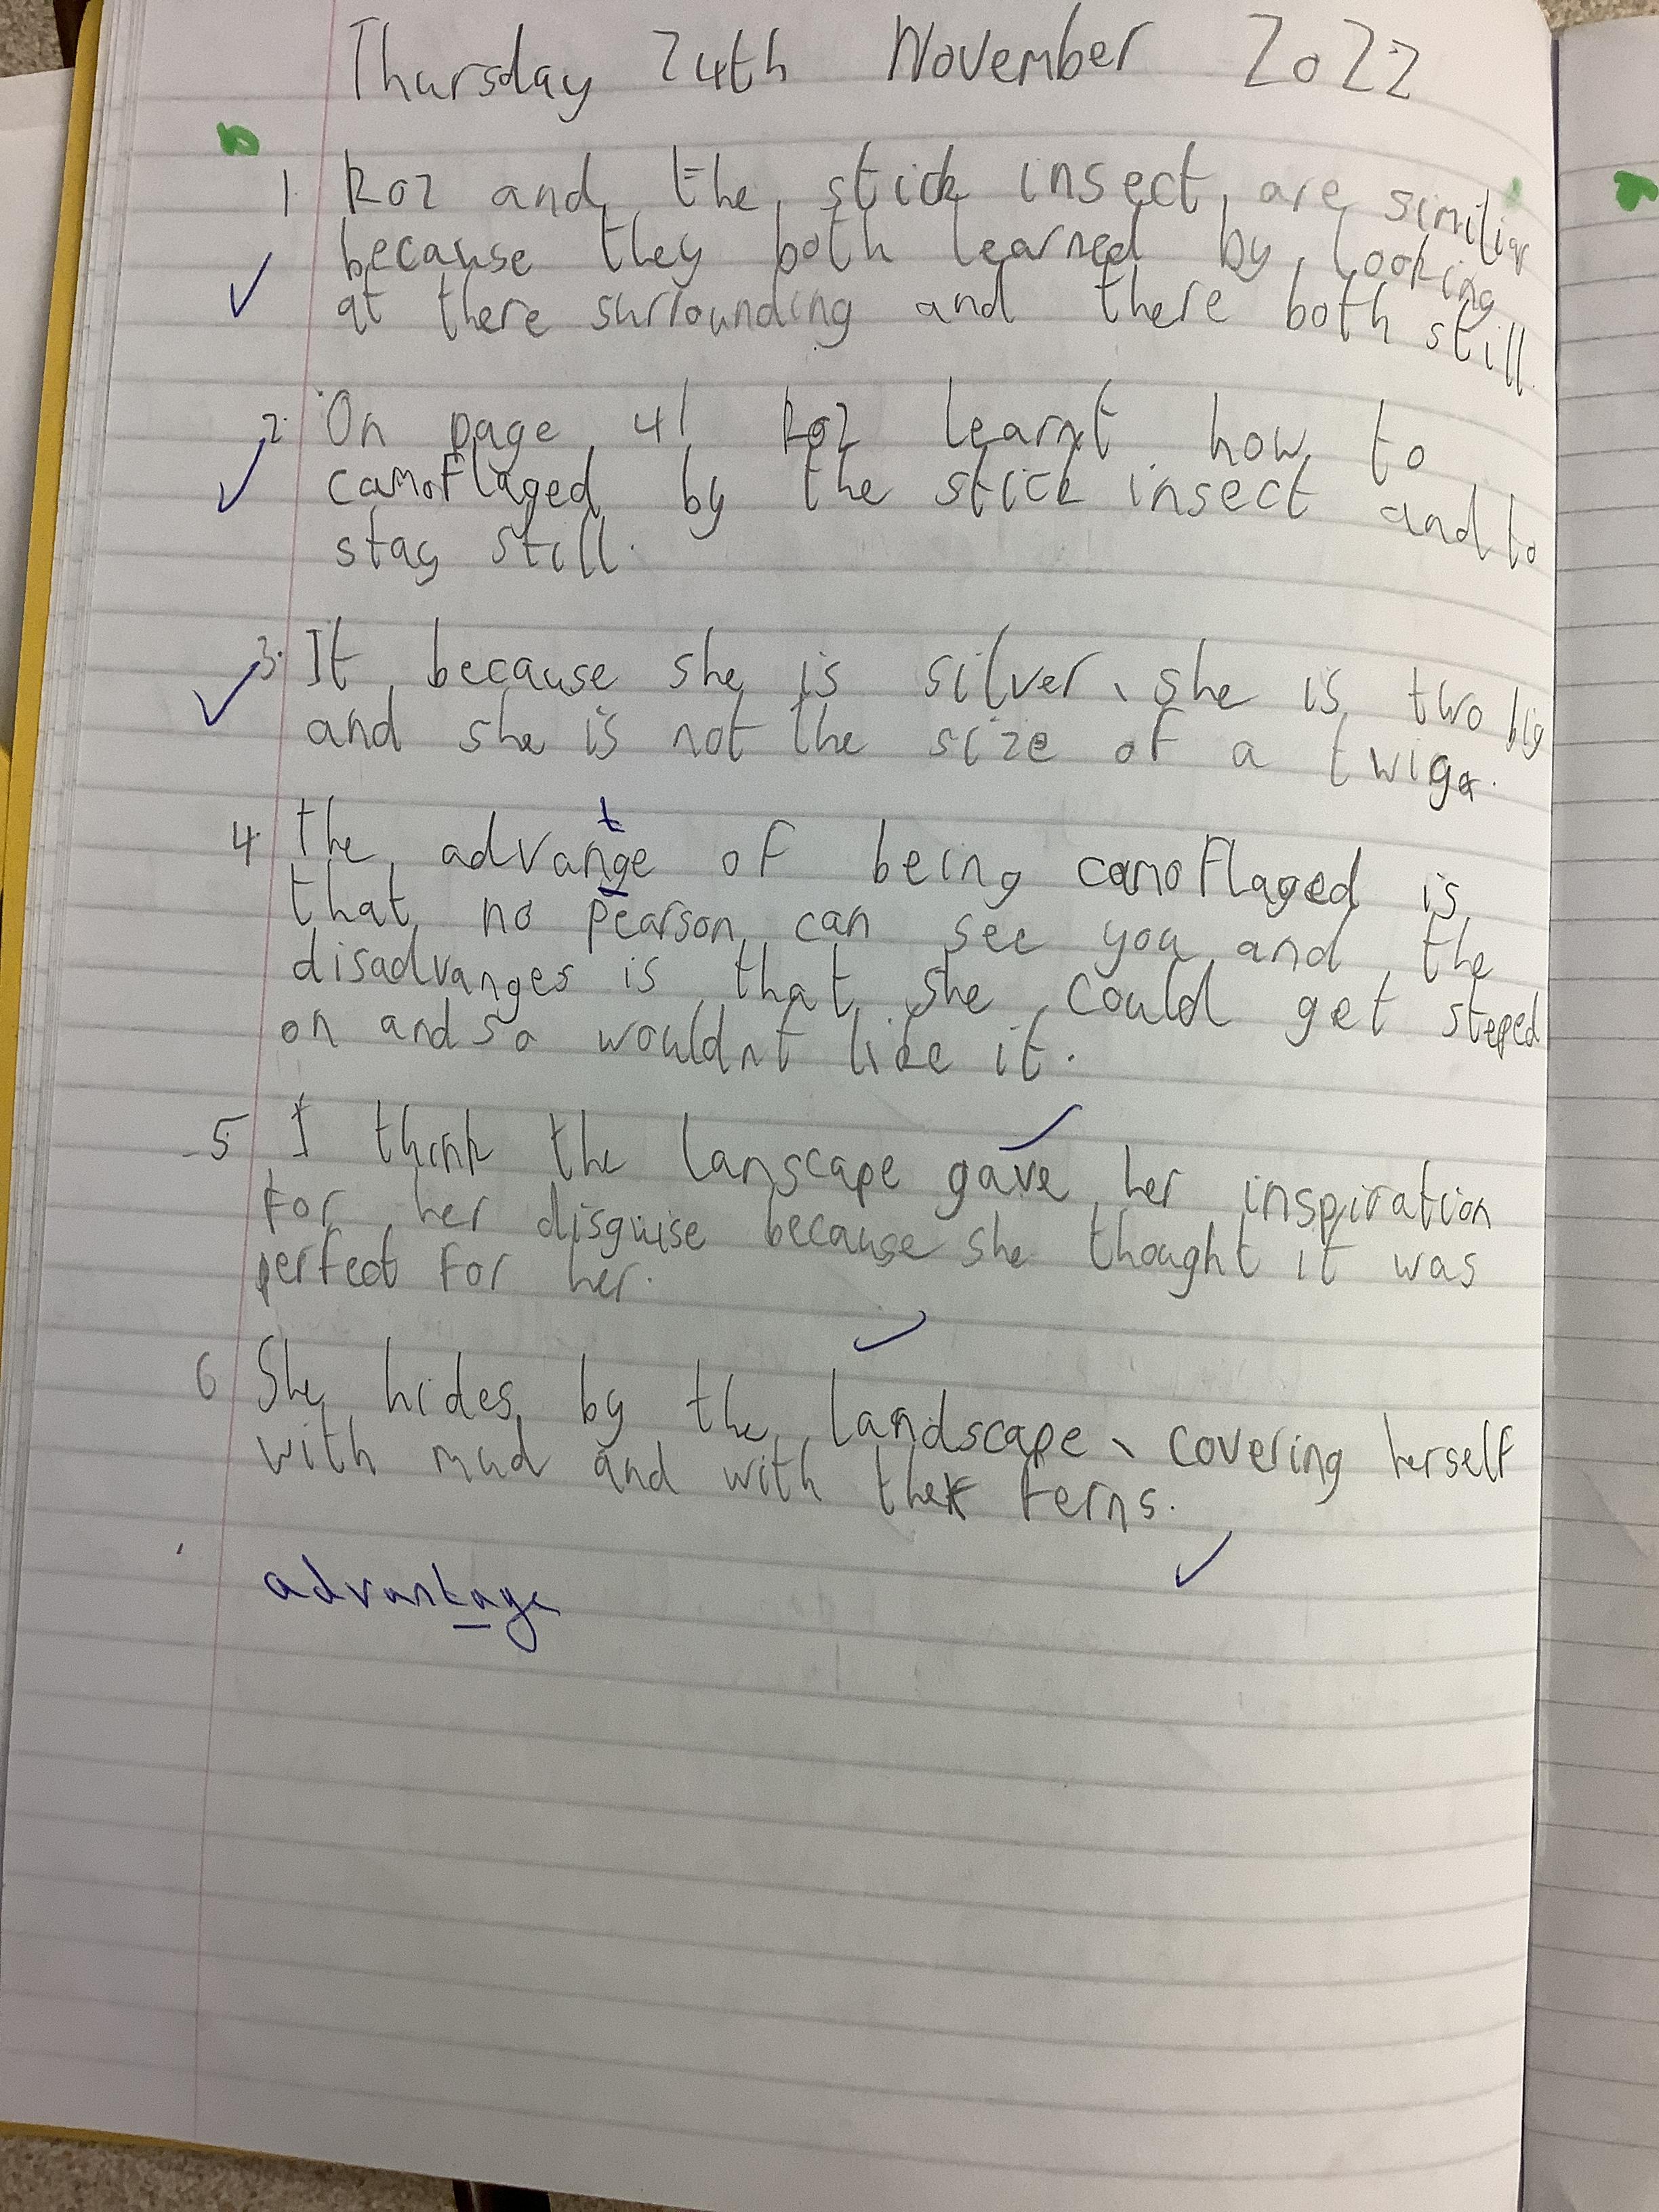 Thursday 24th November 2022
1. Roz and the stick insect are similiar
because they both learned by looking
at there surrounding and there both still.
2. On page 41 Roz learnt how to
camoflaged by the stick insect and to
stay still.
3. It because she is silver, she is two big
and she is not the size of a twig.
t
4. the advange of being camoflaged is
that no pearson can see you and the
disadvanges is that she could get steped
on and so wouldnt like it.
5 I think the lanscape gave her inspiration
for her disguise because she thought it was
perfect for her.
6 She hides by the landscape, covering herself
with mud and with the ferns.
advantage